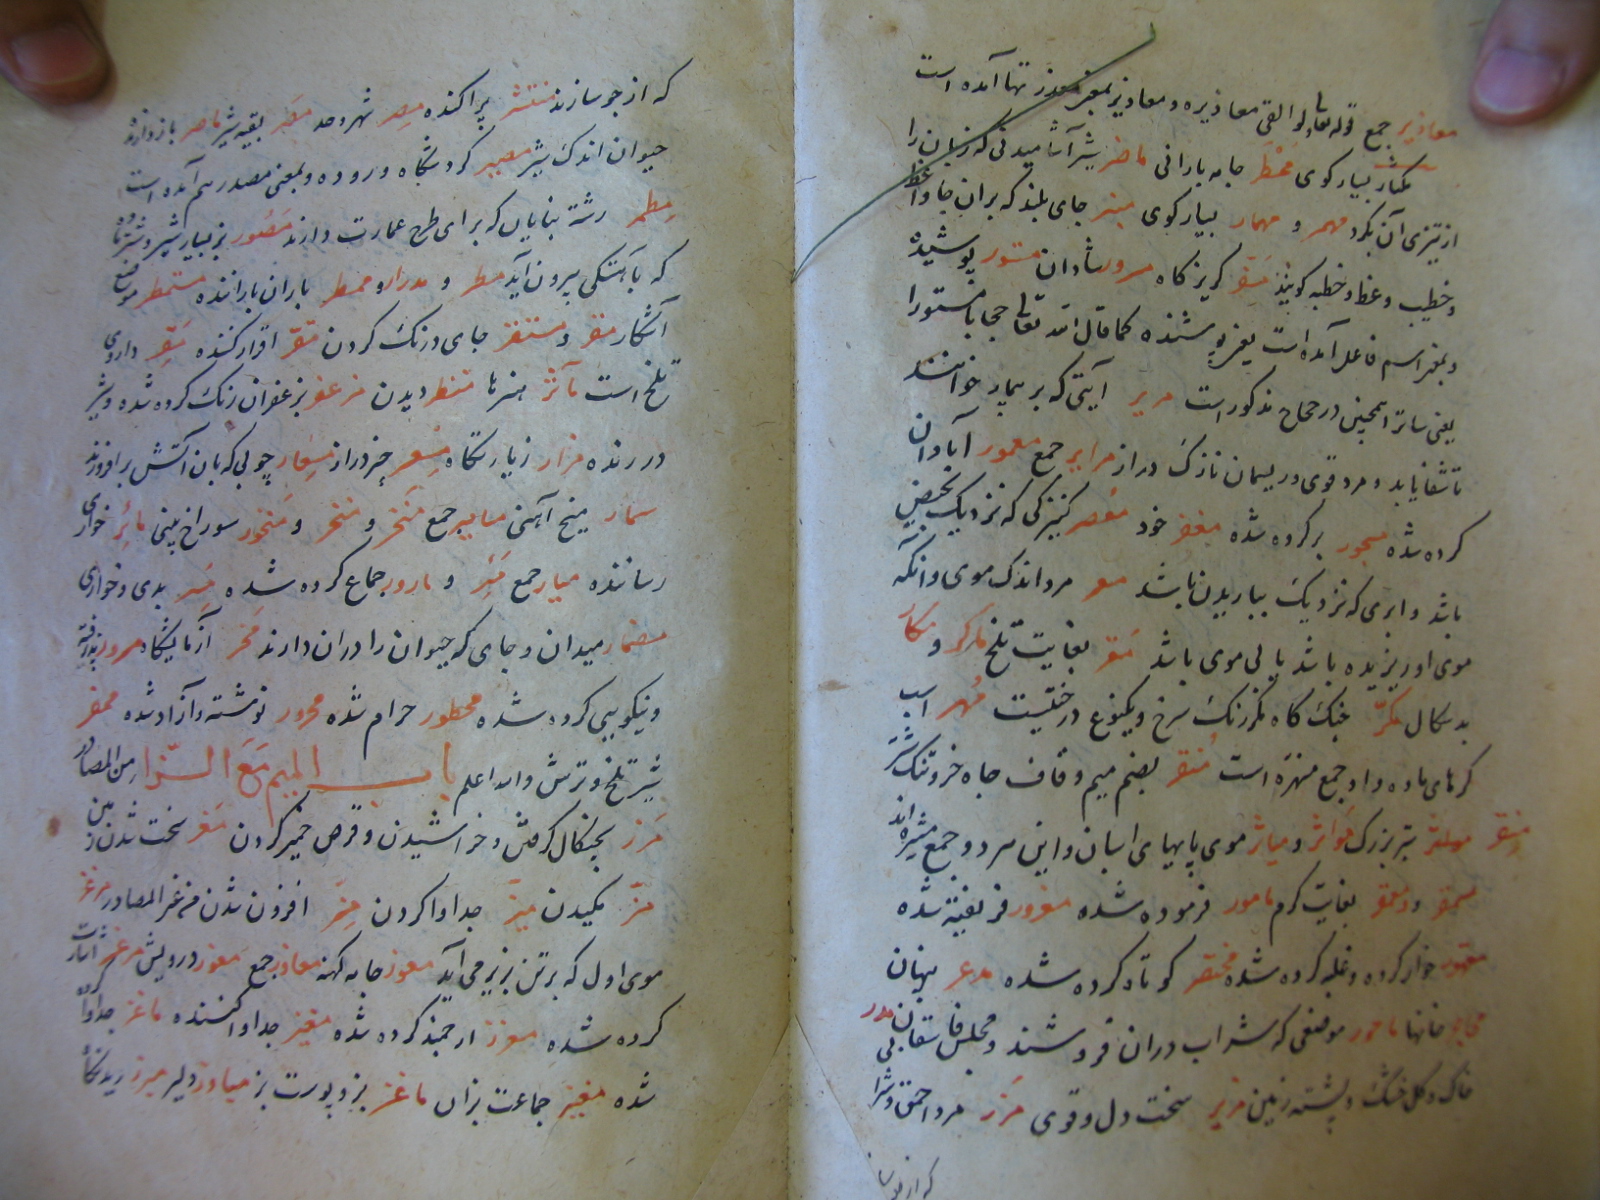 معاذیر جمع قوله تعالی و لو القی معاذیره و معاذیر بمعنی تنها آمده است
مکثار بسیار کوی ممطر جامه بارانی ماضر شیر آشامیدنی که زبان را
از تیزی آن بکزد مهمر و مهمار بسیار کوی منبر جای بلند که بران جا واعظ
و خطیب وعظ و خطبه کویند مفر کریزکاه مسرور شادان مستور پوشیده
و بمعنی اسم فاعل آمده است یعنی پوشنده کما قال الله تعالی حجابا مستورا
یعنی ساترا همچنین در صحاح مذکور است مریر آیتی که بر بیمار خوانند
تا شفا یابد و مرد قوی و ریسمان نازک دراز مرایر جمع معمور آبادان
کرده شده مسجور پر کرده شده مغفر خود معصر کنیزکی که نزدیک بحیض
باشد و ابری که نزدیک بباریدن باشد معر مرد اندک موی و آنکه
موی او ریزیده باشد یا بی موی باشد ممقر بغایت تلخ ماکر و مکار
بد سکال مکر جنک کاه ممغر رنک سرخ و یکنوع درختیست مهر اسب
کرهای ماده و او جمع مهره است منقر بضم میم و قاف چاه خرد تنک سر
منقر تبر بزرک مواثر و میاثر موی پایهای اسبان و این مرد و جمع میثره اند
بغایت کرم مامور فرموده شده مغرور فریفته شده
مقهور خوار کرده و غلبه کرده شده مختصر کوتاه کرده شده پنهان
خانها ماخور موضعی که شراب دران فروشند و مجلس فاسقان مدر
خاک و کل خشک و پشته زمین مزیر سخت دل و قوی مرد احمق
که از جو سازند
که از جو سازند منتشر پراکنده مصر شهر و حد مصر بقیه شیر ماصر باز دارنده
حیوان اندک شیر مصیر کردشکاه و روده و بمعنی مصدر هم آمده است
مطمر رشته بنایان که برای طرح عمارت دارند مصور بز بسیار شیر و شتر ماده
که بآهستکی بیرون آید مطر و مدرار و ممطر باران باراننده مستمطر موضع
آشکار مقر و مستقر جای درنک کردن مقر اقرار کننده مقر داروی
تلخ است مآثر هنرها منظر دیدن مزعفر بزعفران رنک کرده شده و شیر
درنده مزار زیارتکاه مسعر چیز دراز مسعار چوبی که بان آتش برافروزند
مسمار میخ آهنی مسامیر جمع منخر و منخر و منخور سوراخ بینی مائر خواری
رساننده میار جمع و مارور جماع کرده شده بدی و خواری
مضمار میدان و جای که حیوان را دران دارند مخبر آزمایشکاه مبرور پذیرفته
و نیکویی کرده شده محظور حرام شده محرر نوشته و آزاد شده ممقر
شیر تلخ و ترش والله اعلم باب المیم مع الزا من المصادر
مرز بچنکال کرفتن و خراشیدن و قرص خمیر کردن معز سخت شدن زمین
مز مکیدن میز جدا وا کردن مز افزون شدن من غیر المصادر مرغز
موی اول که بر تن بز بر می آید معوز جامه کهنه معاوز جمع معوز درویش مرمز اشارت
کرده شده معزز ارجمند کرده شده ممیز جدا وا کننده ماغز جدا وا
شده معیز جماعت بزان ماعز بز و پوست بز مبارز دلیر مبرز ریدنکاه